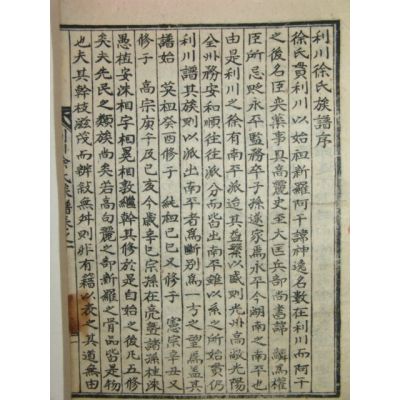 利川徐氏族譜序
徐氏貫利川以始祖新羅阿干諱神逸名數在利川而阿干
之後名臣奕葉事具高麗史至大匡兵部尚書諱鱗爲權
臣所忌貶永平監務卒子孫遂家焉永平今湖南之南平也
由是利川之徐有南平派迨其益繁以盛則光州高敞光陽
全州務安和順往往派分而皆出南平雖以系之所始貫仍
利川譜其族則以派出南平者爲斷別爲一方之望焉盖其
譜始 英祖癸酉修 純祖己巳又修 憲宗辛丑又
修 高宗庚午及己亥今歲 宗孫在亮曁諸孫桂洙
愚植安洙相宇相冕相敦繼幹其修於是自始之後凡五修
矣夫先民之類族尚矣若高勾麗之部新羅之骨品皆是物
也夫其幹枝滋茂而辨敍無舛則非有籍以表之其道無由